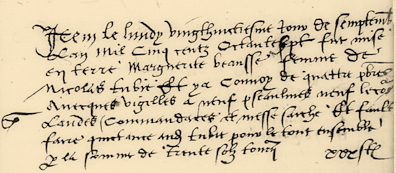 Item le lundy vingthuictiesme Jour de septembre
Lan mil Cinq centz Octante sept fut mise
en terre Marguerite beausse femme de
Nicolas Eubie Et y a Convoy de quattre pbres
Avecques vigilles a neuf pseaulmes neuf lecons
Laudes Commandaces et messe Et fault
faire quictance aud Eubie pour le tout ensemble
p la somme de trente solz tourn xxx s t